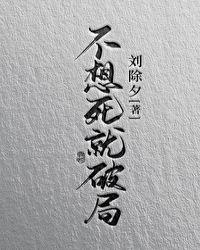 不想死就破局
刘除夕[著]